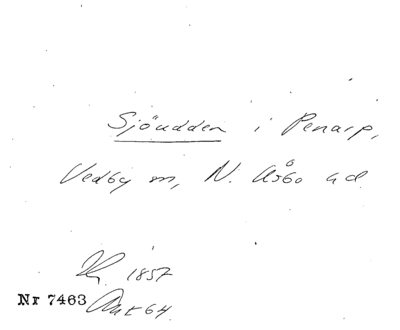 Sjöudden i Penarp,
Vedby sn, N. Åsbo hd.
1857
Nr 7463 Akt 64